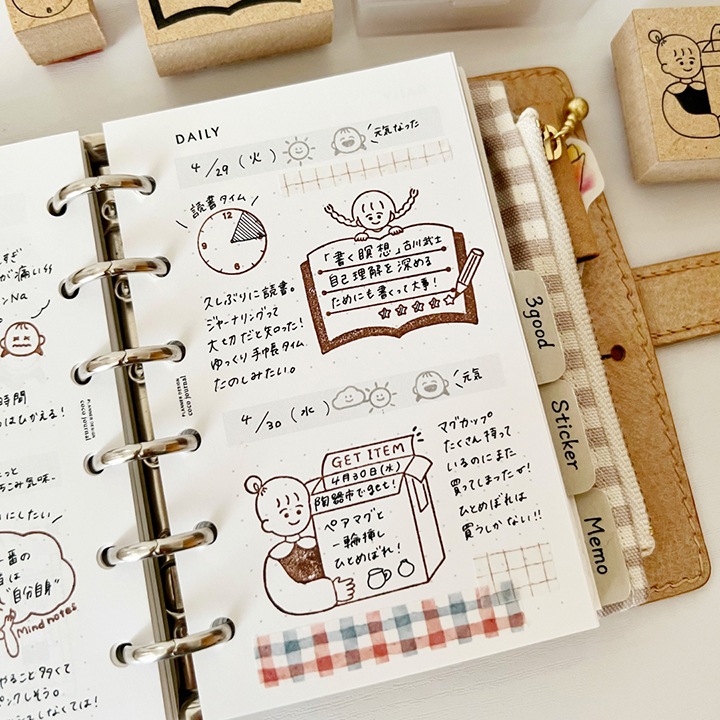 DAILY
4/29(火)
元気なった
読書タイム
12
3
6
9
「書く瞑想」古川武士
自己理解を深める
ためにも書くって大事!
久しぶりに読書。
ジャーナリングって
大切だと知った!
ゆっくり手帳タイム
たのしみたい。
4/30(水)
元気
GET ITEM
4月30日(水)
陶器市でget!
ペアマグと
一輪挿し
ひとめぼれ!
マグカップ
たくさん持って
いるのにまた
買ってしまったで!
ひとめぼれは
買うしかない!!
3good
Sticker
Memo
coco journal
が痛い
Na
時間
はひかえる!
ごみ気味
にしたい
番の
は
"自分自身"
Mind notes
やること多くて
しそう。
しなくては!